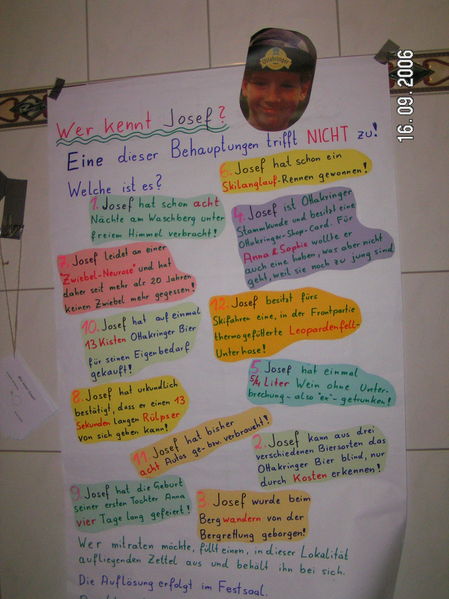 16.09.2006
Wer kennt Josef?
Eine dieser Behauptungen trifft NICHT zu!
Welche ist es?
6. Josef hat schon ein
Skilanglauf-Rennen gewonnen!
1. Josef hat schon acht
Nächte am Waschberg unter
freiem Himmel verbracht!
4. Josef ist Ottakringer
Stammkunde und besitzt eine
Ottakringer-Shop-Card. Für
Anna & Sophie wollte er
auch eine haben, was aber nicht
geht, weil sie noch zu jung sind
7. Josef leidet an einer
"Zwiebel-Neurose" und hat
daher seit mehr als 20 Jahren
keinen Zwiebel mehr gegessen!
12. Josef besitzt fürs
Skifahren eine, in der Frontpartie
thermogefütterte Leopardenfell-
Unterhose!
10. Josef hat auf einmal
13 Kisten Ottakringer Bier
für seinen Eigenbedarf
gekauft!
5. Josef hat einmal
5/4 Liter Wein ohne Unter-
brechung - also "ex" - getrunken!
8. Josef hat urkundlich
bestätigt, dass er einen 13
Sekunden langen Rülpser
von sich geben kann!
11. Josef hat bisher
acht Autos ge- bzw. verbraucht!
2. Josef kann aus drei
verschiedenen Biersorten das
Ottakringer Bier blind, nur
durch Kosten erkennen!
9. Josef hat die Geburt
seiner ersten Tochter Anna
vier Tage lang gefeiert!
3. Josef wurde beim
Bergwandern von der
Bergrettung geborgen!
Wer mitraten möchte, füllt einen, in dieser Lokalität
aufliegenden Zettel aus und behält ihn bei sich.
Die Auflösung erfolgt im Festsaal.